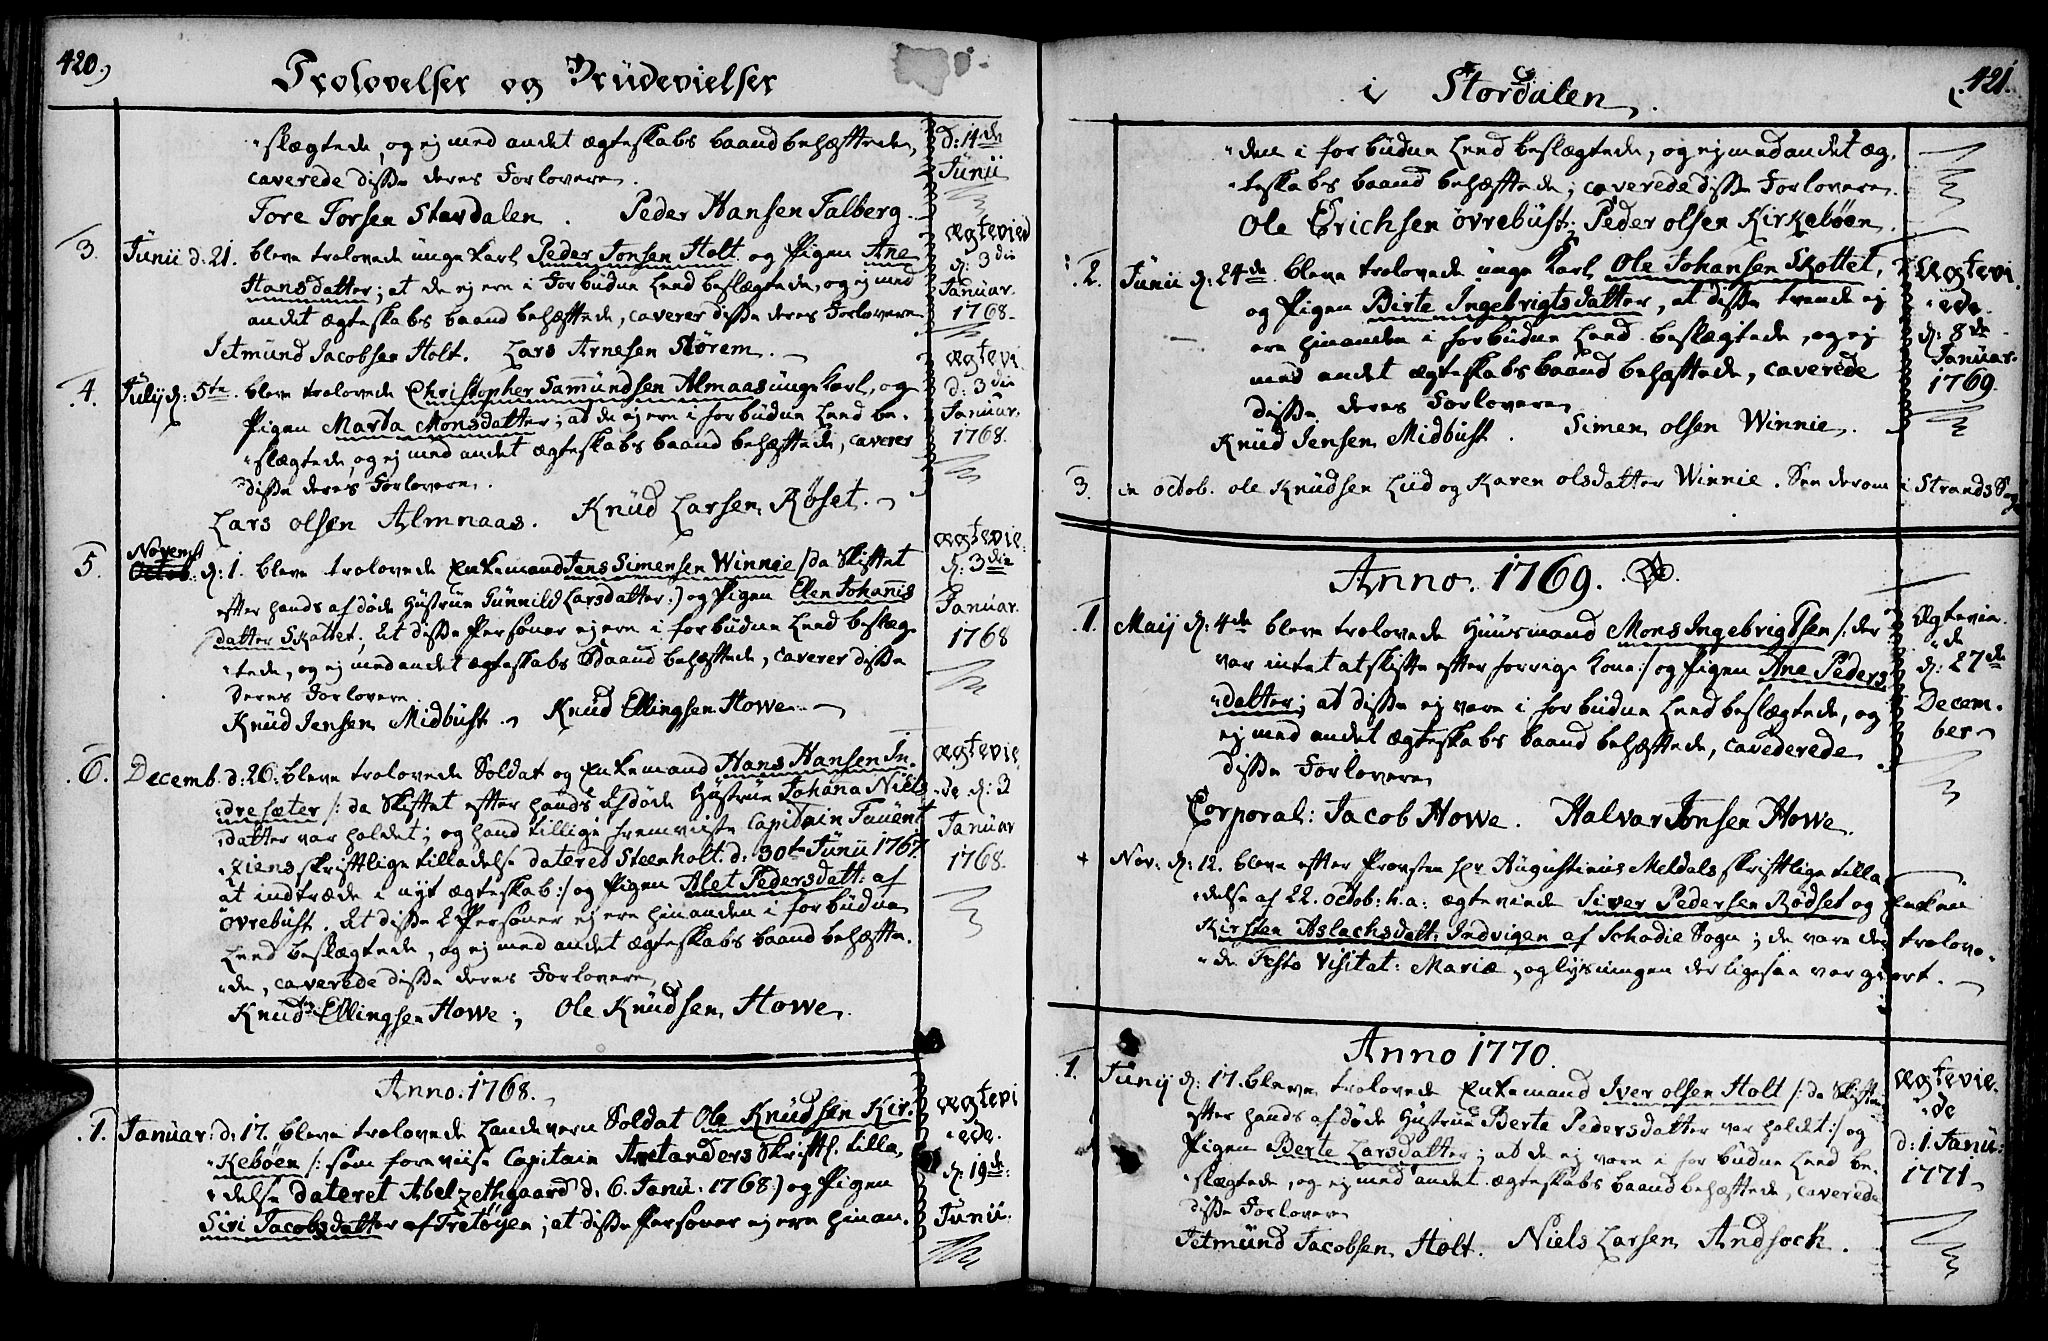 420.
Trolovelser og Brüdevielser
slægtede, og ej med andet ægteskabs baand behæftede,
caverede disse deres Forlovere.
Tore Torsen Stordalen. Peder Hansen Talberg.
d: 14de
Junii
3. Junii d. 21. bleve trolovede unge karl Peder Jonsen Holt og Pigen Ane
Hansdatter; at de ej ere i Forbudne Leed beslægtede, og ej med
andet ægteskabs baand behæftede, caverer disse deres Forlovere
Jetmund Jacobsen Holt. Lars Arnesen Størem.
ægtevied
d: 3die
Januar.
1768.
4. July d: 5te. bleve trolovede Christopher Samundsen Almaas unge karl, og
Pigen Marta Monsdatter; at de ej ere i forbudne Leed be-
slægtede, og ej med andet ægteskabs baand behæftede, caverer
disse deres Forlovere.
Lars Olsen Almnaas. Knud Larsen Røset.
ægtevi.
d: 3die
Januar.
1768.
5. Novemb.
Octob. d: 1. bleve trolovede Enkemand Jens Simensen Winnie /: da Skiftet
efter hands afdøde Hustrue Gunnild Larsdatter :/ og Pigen Elen Johannis
datter Skottet; At disse Personer ej ere i forbudne Leed beslæg-
tede, og ej med andet ægteskabs Baand behæftede, caverer disse
deres Forlovere
Knud Jensen Midbust. Knud Ellingsen Howe.
ægtevie.
d: 3die
Januar.
1768
6. Decemb. d: 26. bleve trolovede Soldat og Enkemand Hans Hansen In-
dresæter /: da Skiftet efter hands afdøde Hustrue Johana Niels
datter var holdet; og hand tillige fremviiste Capitain Fauent
ziens skriftlige tilladelse dateret Steenholt d: 30te Junii 1767.
at indtræde i nyt ægteskab :/ og Pigen Alet Pedersdatt: af
Øvrebust. At disse 2 Personer ej ere hinanden i forbudne
Leed beslægtede, og ej med andet ægteskabs baand behæfte-
de, caverede disse deres Forlovere
Knud Ellingsen Howe; Ole Knudsen Howe.
ægtevie.
de d: 3
Januar
1768.
Anno. 1768.
1. Januar: d: 17. bleve trolovede Landevern Soldat Ole Knudsen Kir-
kebøen /: som foreviiste Capitain Skriftl. tilla-
delse dateret d: 6. Janu: 1768 :/ og Pigen
Siri Jacobsdatter af Tretøyen; at disse Personer ej ere hinan-
ægtevi
ede.
d: 19de:
Junii:
421.
i Stordalen.
den i forbudne Leed beslægtede, og ej med andet æg-
teskabs baand behæftede; caverede disse Forlovere.
Ole Erichsen Øvrebust; Peder Olsen Kirkebøen.
2. Junii d: 24de bleve trolovede unge karl Ole Johansen Skottet,
og Pigen Birte Ingebrigtsdatter, at disse tvende ej
ere hinanden i forbudne Leed beslægtede, og ej
med andet ægteskabs baand behæftede, caverede
disse deres Forlovere
Knud Jensen Midbust. Simen Olsen Winnie.
Ægtevi
ede.
d: 8de
Januar.
1769.
3. in Octob. Ole Knudsen Liid og Karen Olsdatter Winnie. See derom i Strands Sogn
Anno. 1769.
1. Maij d: 4de bleve trolovede Huusmand Mons Ingebrigtsen /: der
var intet at skifte efter forrige kone :/ og Pigen Ane Peders
datter; at disse ej vare i forbudne Leed beslægtede, og
ej med andet ægteskabs baand behæftede, cavederede
disse Forlovere
Corporal: Jacob Howe. Halvar Jonsen Howe.
Ægtevie.
de
d: 27de
Decem-
ber
+ Nov: d: 12. bleve efter Provsten Hr. Augustinus Meldals skriftlige tilla
delse af 22. Octob: h.a: ægteviede Siver Pedersen Rødset og Enken
Kirsten Aslachsdatt: Indvigen af Schodie Sogn; de vare der trolove-
de Festo Visitat: Mariæ, og lysningen der ligesaa var giort.
Anno 1770.
1. Junij d: 17. bleve trolovede Enkemand Iver Olsen Holt /: da Skiftet
efter hands afdøde Hustrue Berte Pedersdatter var holdet :/ og
Pigen Berte Larsdatter; at de ej vare i forbudne Leed be-
slægtede, og ej med andet ægteskabs baand behæftede, caverede
disse Forlovere
Jetmund Jacobsen Holt. Niels Larsen Andsock.
ægtevie.
de
d: 1. Janu:
1771